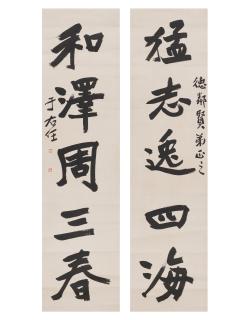 猛志逸四海
德鄰賢弟正之
和澤周三春
于右任